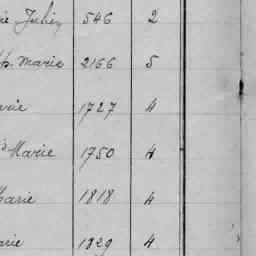 ie Julien 546 2
h. Marie 2166 5
arie 1727 4
s Marie 1750 4
Marie 1818 4
arie 1829 4